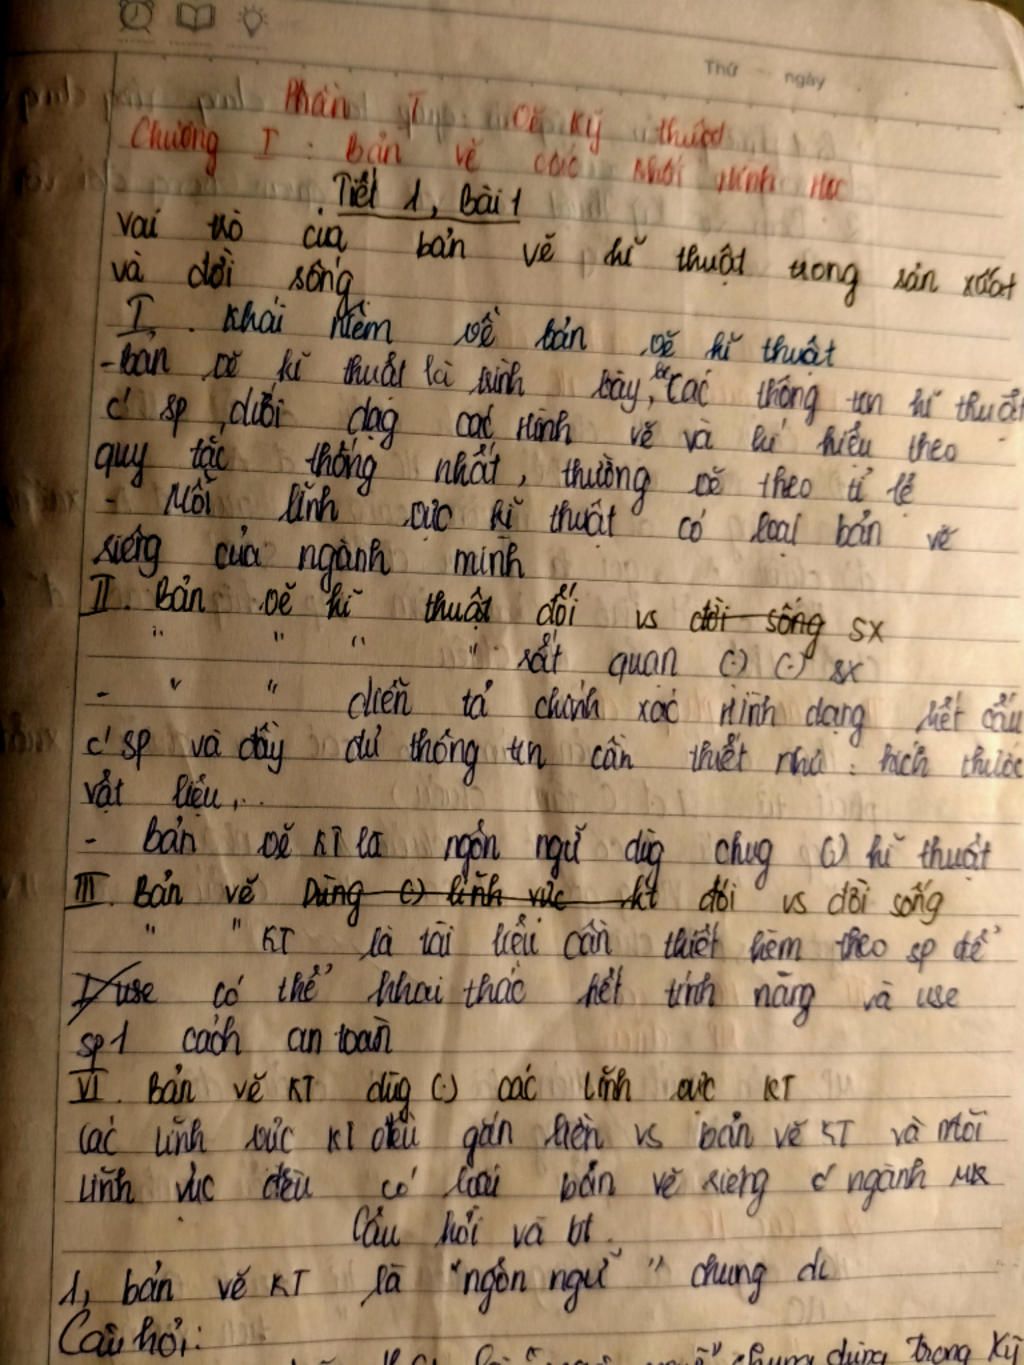 Thứ ngày
Phần I : Vẽ Kỹ thuật
Chương I : Bản vẽ các khối hình học
Tiết 1, Bài 1
vai trò của bản vẽ kĩ thuật trong sản xuất
và đời sống
I. Khái niệm về bản vẽ kĩ thuật
- bản vẽ kĩ thuật là trình bày, các thông tin kĩ thuật
c' sp dưới dạg các hình vẽ và kí hiệu theo
quy tắc thống nhất, thường vẽ theo tỉ lệ
- Mỗi lĩnh vực kĩ thuật có loại bản vẽ
riêng của ngành mình
II. Bản vẽ kĩ thuật đối vs đời sống sx
" " " " rất quan (.) (.) sx
- " " diễn tả chính xác hình dạng kết cấu
c' sp và đầy đủ thông tin cần thiết như : kích thước
vật liệu,..
- bản vẽ KT là ngôn ngữ dùg chug (.) kĩ thuật
III. Bản vẽ Dùng (.) lĩnh vực kt đối vs đời sống
" " KT là tài liệu cần thiết kèm theo sp để
I/ use có thể khai thác hết tính năng và use
sp 1 cách an toàn
VI. Bản vẽ KT dùg (.) các lĩnh vực KT
Các lĩnh vực KT đều gắn liền vs bản vẽ KT và mỗi
lĩnh vực đều có loại bản vẽ riêng c' ngành
Câu hỏi và bt.
1, bản vẽ KT là "ngôn ngữ" chung
Câu hỏi:
chung dùng trong Kỹ